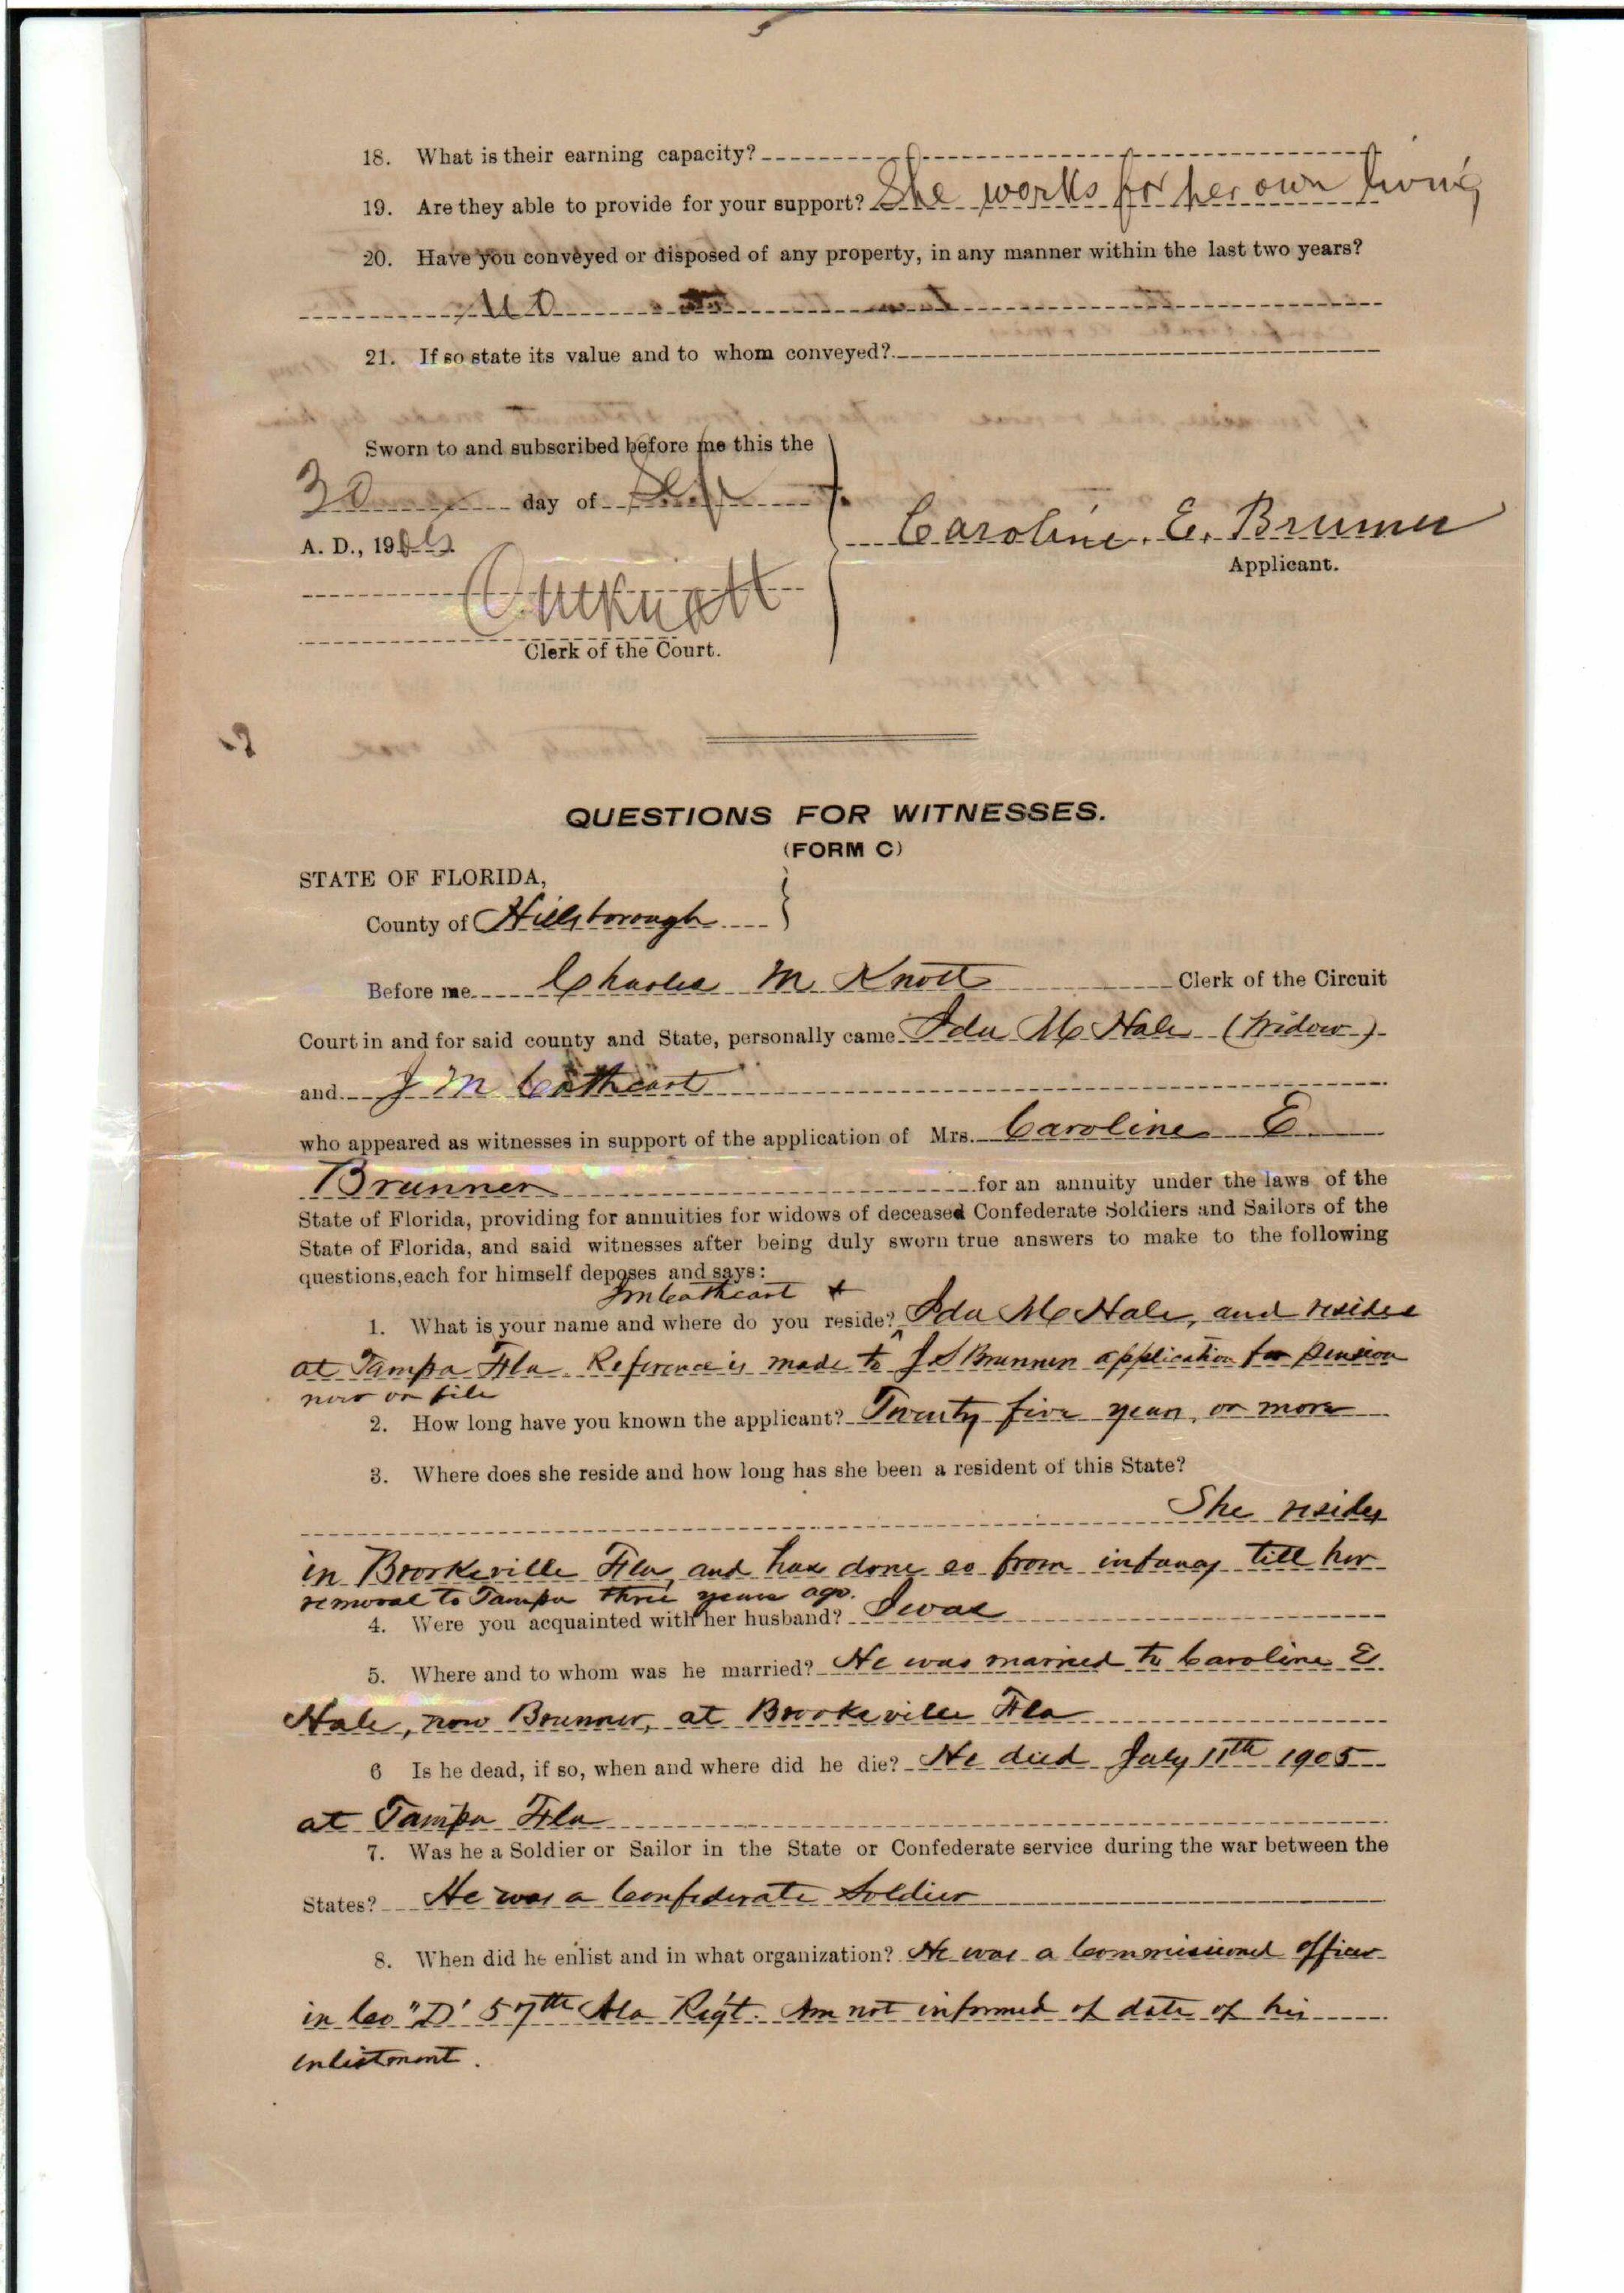 18. What is their earning capacity?
19. Are they able to provide for your support? She works for her own living
20. Have you conveyed or disposed of any property, in any manner within the last two years?
no
21. If so state its value and to whom conveyed?
Sworn to and subscribed before me this the
30 day of
A. D., 190
Caroline. E. Brunner
Applicant.
Clerk of the Court.
QUESTIONS FOR WITNESSES.
(FORM C)
STATE OF FLORIDA,
County of Hillsborough
Before me Charles M Knott Clerk of the Circuit
Court in and for said county and State, personally came Ida M Hale (Widow)
and J M Cathcart
who appeared as witnesses in support of the application of Mrs. Caroline E
Brunner for an annuity under the laws of the
State of Florida, providing for annuities for widows of deceased Confederate Soldiers and Sailors of the
State of Florida, and said witnesses after being duly sworn true answers to make to the following
questions, each for himself deposes and says:
J M Cathcart +
1. What is your name and where do you reside? Ida M Hale, and resides
at Tampa Fla. Reference is made to J S Brunner application for pension
now on file
2. How long have you known the applicant? Twenty five years, or more
3. Where does she reside and how long has she been a resident of this State?
She resides
in Brooksville Fla, and has done so from infancy till her
removal to Tampa three years ago.
4. Were you acquainted with her husband? I was
5. Where and to whom was he married? He was married to Caroline E
Hale, now Brunner, at Brooksville Fla
6 Is he dead, if so, when and where did he die? He died July 11th 1905
at Tampa Fla
7. Was he a Soldier or Sailor in the State or Confederate service during the war between the
States? He was a Confederate Soldier
8. When did he enlist and in what organization? He was a Commissioned officer
in Co "D" 57th Ala Reg't. Am not informed of date of his
enlistment.